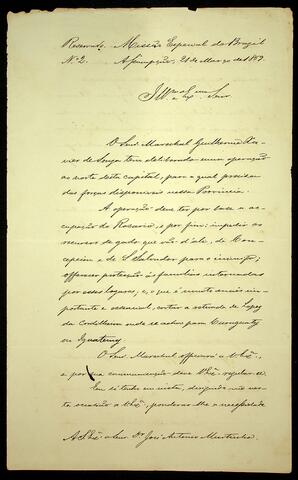 Reservado. Missão Especial do Brazil
N.º 2. Assumpção, 21 de Março de 1869.
Illmo. e Exmo. Senr.
O Senr. Marechal Guilherme Xa-
vier de Souza tem deliberado uma operação
ao norte desta capital, para a qual precisa
das forças disponiveis nessa Provincia.
A operação deve ter por base a oc-
cupação do Rosario, e por fim: impedir os
recursos de gado que vão d'ali, de Con-
cepcion e de S. Salvador para o inimigo;
offerecer protecção ás familias internadas
por esses logares; e, o que é muito mais im-
portante e essencial, cortar a retirada de Lopez
da Cordilheira onde se acha para Curuguaty
ou Iguatemy.
O Senr. Marechal officiará a V. Ex.ª
e por sua communicação deve V. Ex.ª regular-se.
Eu só tenho em vista, dirigindo-me nes-
ta occasião a V. Ex.ª, ponderar-lhe a necessidade
A S. Ex.ª o Senr. Dr. José Antonio Murtinho.